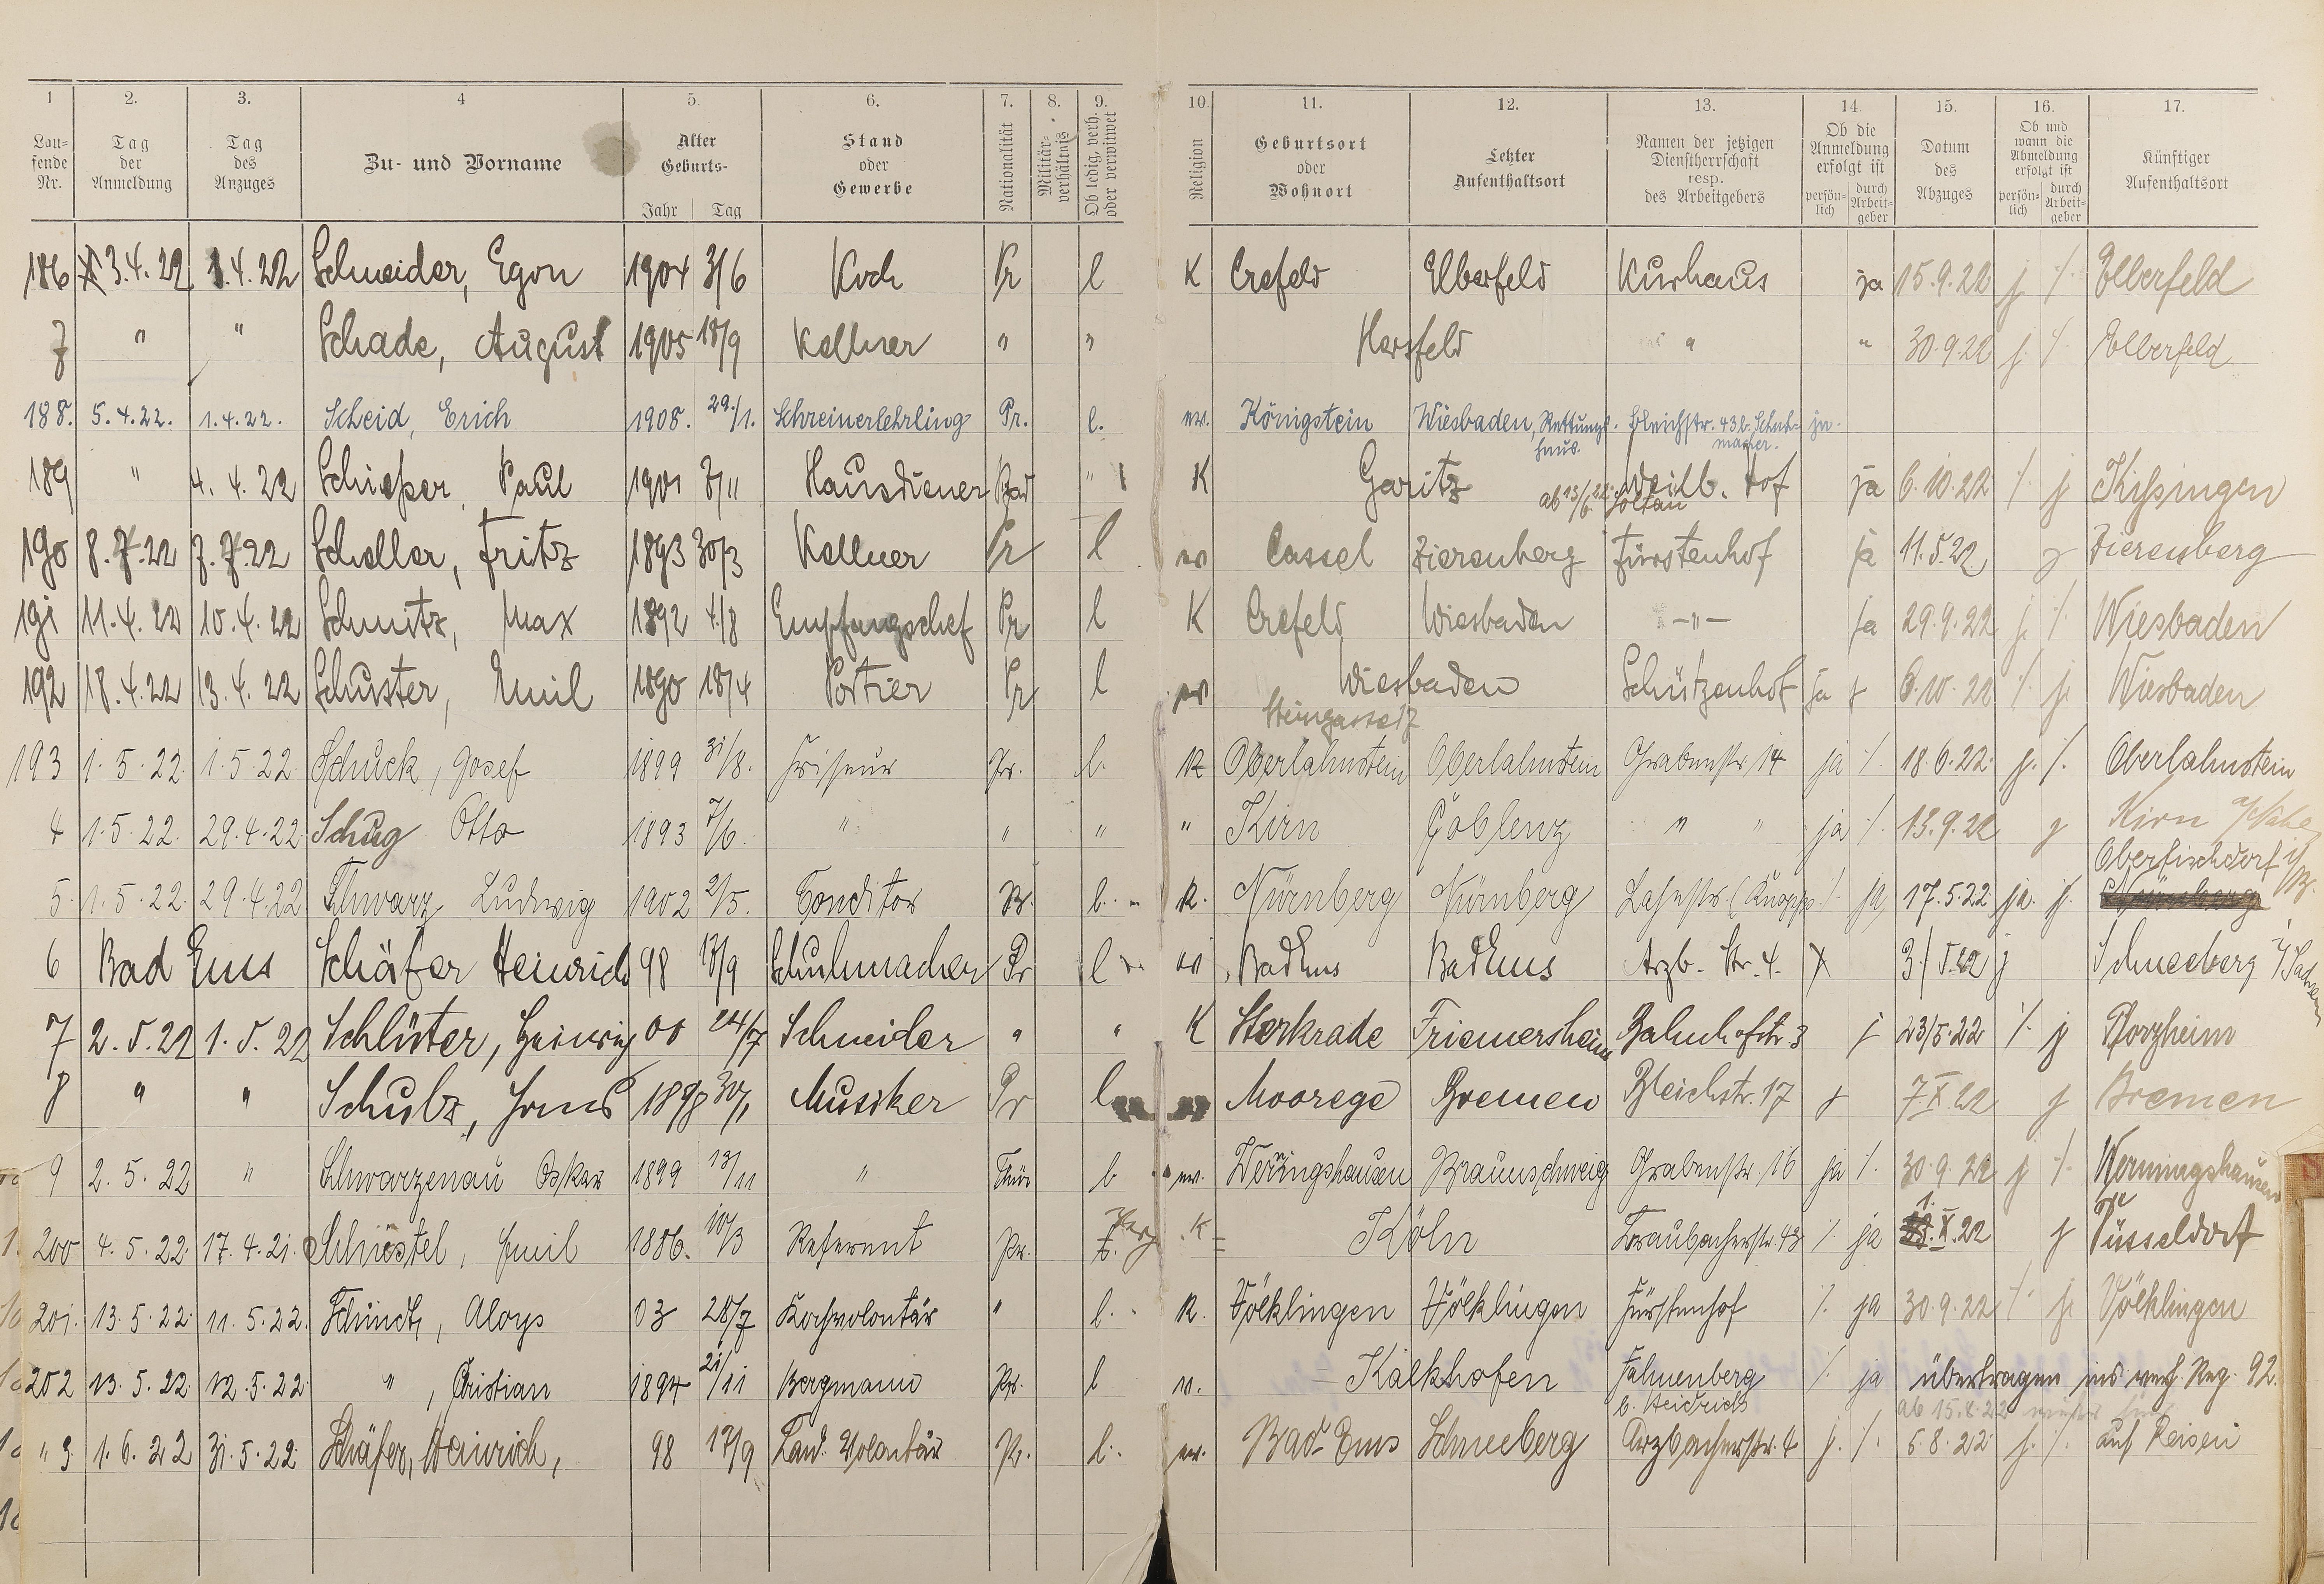 1 2. 3. 4 5. 6. 7. 8. 9. 10. 11. 12. 13. 14. 15. 16. 17.
Lau-
fende
Nr.
Tag
der
Anmeldung
Tag
des
Anzuges
Zu- und Vorname
Alter
Geburts-
Jahr Tag
Stand
oder
Gewerbe
Nationalität
Militär-
verhältnis
Ob ledig, verh.
oder verwitwet
Religion
Geburtsort
oder
Wohnort
Letzter
Aufenthaltsort
Namen der jetzigen
Dienstherrschaft
resp.
des Arbeitgebers
Ob die
Anmeldung
erfolgt ist
persön-
lich
durch
Arbeit-
geber
Datum
des
Abzuges
Ob und
wann die
Abmeldung
erfolgt ist
persön-
lich
durch
Arbeit-
geber
Künftiger
Aufenthaltsort
186 3.4.22 1.4.22 Schneider, Egon 1904 3/6 Koch Pr l K Crefeld Elberfeld Kurhaus ja 15.9.22 j /. Elberfeld
7 " " Schade, August 1905 18/9 Kellner " " Hersfeld " " 30.9.22 j. /. Elberfeld
188. 5.4.22. 1.4.22. Scheid, Erich 1908. 29./1. Schreinerlehrling Pr. l. ev. Königstein Wiesbaden, Rettungs- Bleichstr. 43 b. Schuh- ja.
haus. macher.
189 " 4.4.22 Schießer, Paul 1901 3/11 Hausdiener Bad " K Garitz Weilb. Hof ja 6.10.22 /. j Kissingen
ab 13/6.22. Soltau
190 8.4.22 7.4.22 Scheller, Fritz 1893 30/3 Kellner Pr l ev Cassel Zierenberg Fürstenhof ja 11.5.22 j Zierenberg
191 11.4.22 10.4.22 Schmitz, Max 1892 4/8 Empfangschef Pr l K Crefeld Wiesbaden -"- ja 29.9.22 j. /. Wiesbaden
192 18.4.22 13.4.22 Schuster, Emil 1890 18/4 Portier Pr l ev Wiesbaden Schützenhof ja 8.10.22 /. j. Wiesbaden
Steingasse 17
193 1.5.22 1.5.22. Schuck, Josef 1899 31/8. Friseur Pr. l. K Oberlahnstein Oberlahnstein Grabenstr. 14 ja /. 18.6.22. j. /. Oberlahnstein
4 1.5.22. 29.4.22. Schug Otto 1893 7/6. " " " " Kirn Coblenz " " ja /. 13.9.22 j Kirn a/Nahe
Oberfischdorf
5. 1.5.22. 29.4.22 Schwarz Ludwig 1902 2/5. Conditor l. K. Nürnberg Nürnberg Lahnstr. (Knopp) /. ja 17.5.22 ja. j. Nürnberg
6 Bad Ems Schäfer Heinrich 98 17/9 Schuhmacher Pr l ev Bad Ems Bad Ems Arzb. Str. 4. 3/5.22 j Schneeberg i/Sachsen
7 2.5.22 1.5.22 Schlüter, 00 24/7 Schneider " " K Sterkrade Friemersheim Bahnhofstr 3 j 23/5.22 /. j Pforzheim
8 " " Schulz, Hans 1898 30/1 Musiker Pr l ev Moorege Bremen Bleichstr. 17 j 7 X 22 j Bremen
9 2.5.22 " Schwarzenau Oskar 1899 13/11 " Thür l ev. Werningshausen Braunschweig Grabenstr. 16 ja /. 30.9.22 j /. Werningshausen
200 4.5.22. 17.4.21. Emil 1886. 10/3 Referent Pr. K Köln Braubacherstr. 43 /. ja 1. X.22 j Düsseldorf
201. 13.5.22 11.5.22. Schmidt, Aloys 03 28/7 Kochvolontär " l. K. Völklingen Völklingen Fürstenhof /. ja 30.9.22 /. j. Völklingen
202 13.5.22. 12.5.22 " , Christian 1894 21/11 Bergmann Pr. l ev. Kalkhofen Fahnenberg /. ja übertragen ins verh. Reg. 92.
b. Heidrich
" 3. 1.6.22 31.5.22. Schäfer, Heinrich, 98 17/9 Land. Volontär Pr. l. ev. Bad Ems Schneeberg Arzbacherstr. 4 j. /. 5.8.22 j. /. auf Reisen